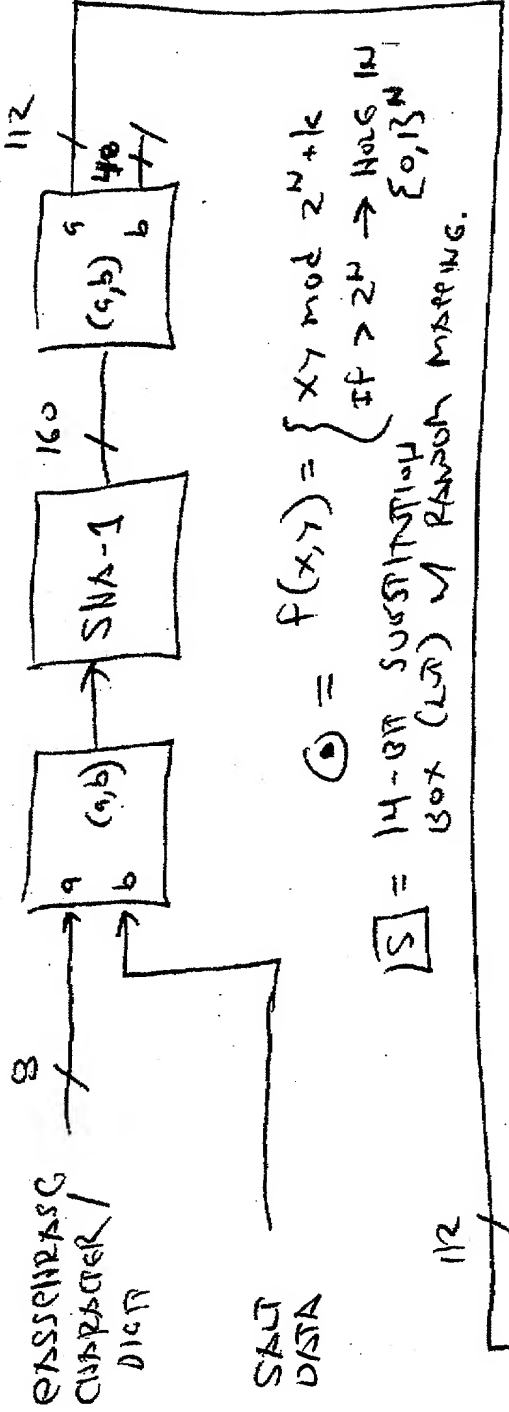 PASSPHRASE
CHARACTER /
DIGIT
8
SALT
DATA
a
b
(a,b)
SHA-1
160
(a,b)
a
b
112
48
⊙ = f(x,y) = { xy mod 2^N + k
If > 2^N → HOLE IN
{0,1}^N
S = 14-BIT SUBSTITUTION
BOX (LUT) w/ RANDOM MAPPING.
112